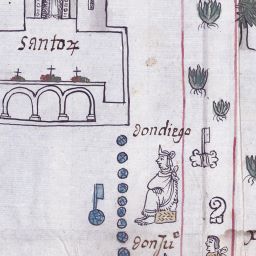 santoz
don diego
don Juº